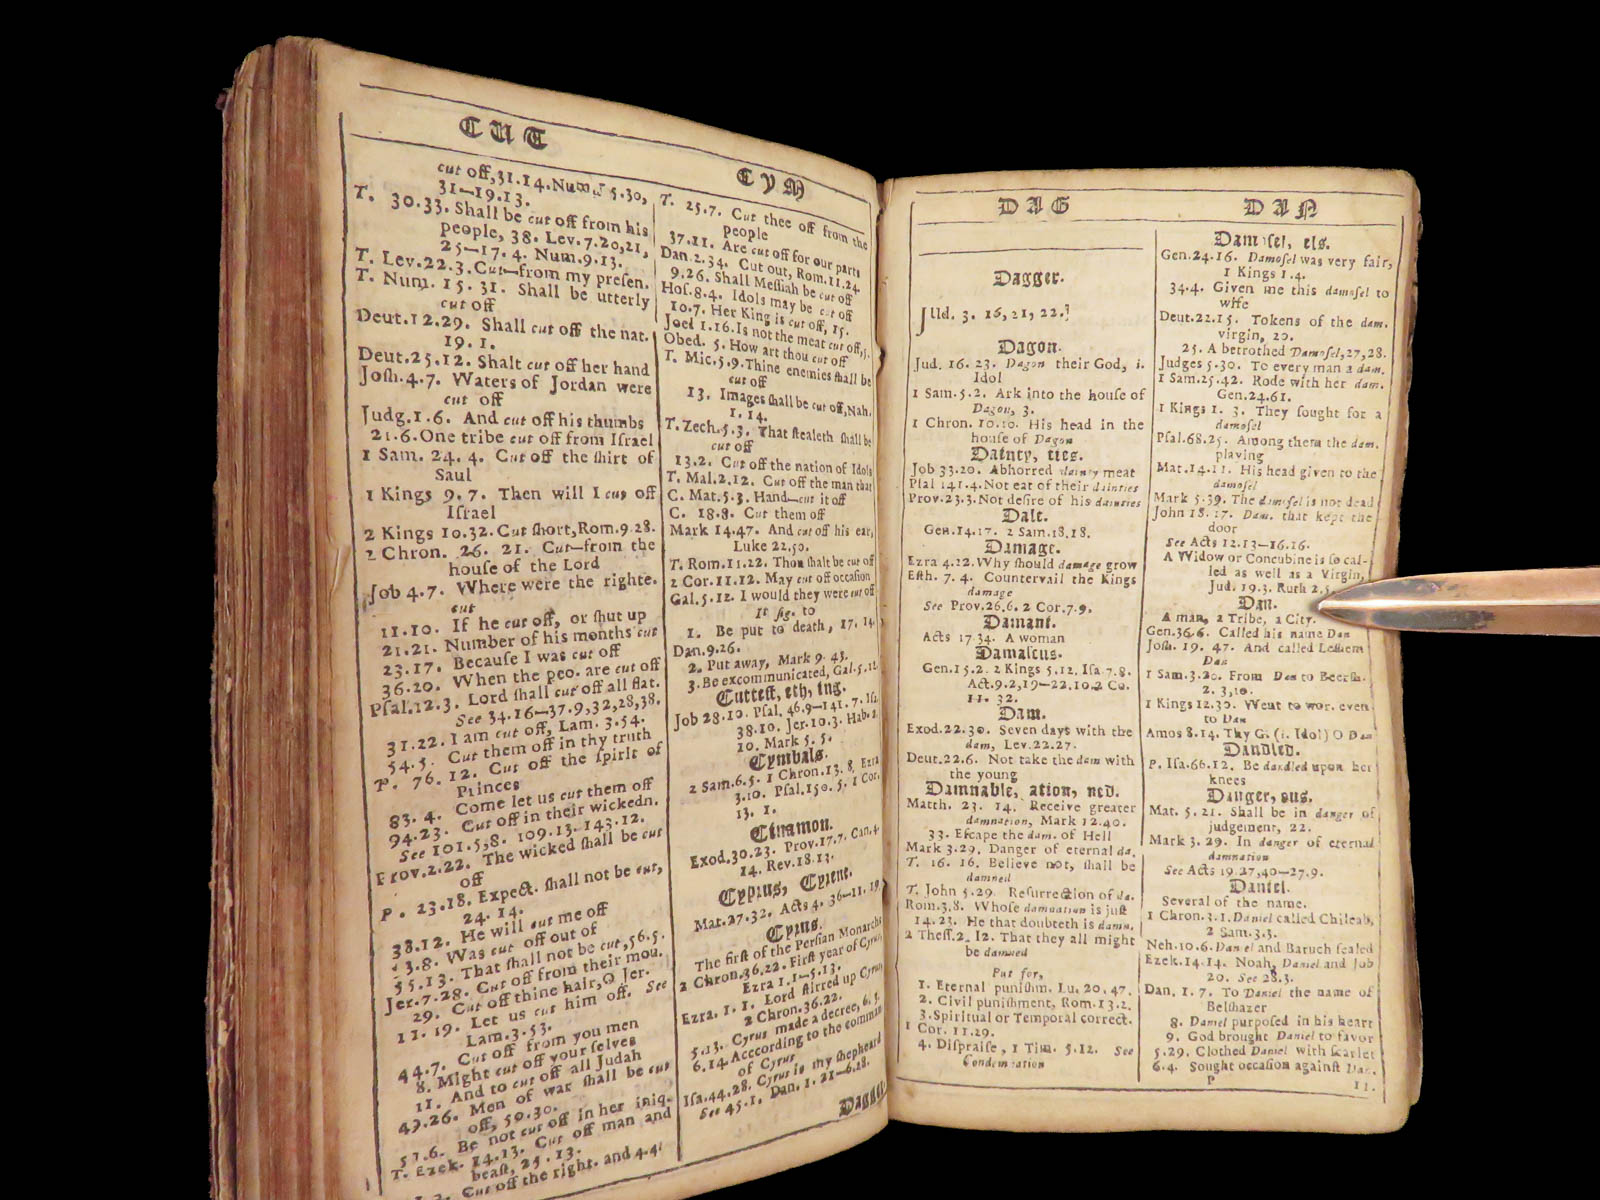 CUT
cut off, 31.14. Num. 15.30,
31—19.13.
T. 30.33. Shall be cut off from his
people, 38. Lev. 7.20,21,
25—17.4. Num. 9.13.
T. Lev. 22.3. Cut—from my preſen.
T. Num. 15. 31. Shall be utterly
cut off
Deut. 12.29. Shall cut off the nat.
19. 1.
Deut. 25.12. Shalt cut off her hand
Joſh. 4.7. Waters of Jordan were
cut off
Judg. 1.6. And cut off his thumbs
21.6. One tribe cut off from Iſrael
1 Sam. 24. 4. Cut off the ſkirt of
Saul
1 Kings 9.7. Then will I cut off
Iſrael
2 Kings 10.32. Cut ſhort, Rom. 9.28.
2 Chron. 26. 21. Cut—from the
houſe of the Lord
Job 4.7. Where were the righte.
cut
11.10. If he cut off, or ſhut up
21.21. Number of his months cut
23.17. Becauſe I was cut off
36.20. When the peo. are cut off
Pſal. 12.3. Lord ſhall cut off all flat.
See 34.16—37.9,32,28,38.
31.22. I am cut off, Lam. 3.54.
54.5. Cut them off in thy truth
P. 76. 12. Cut off the ſpirit of
Princes
83. 4. Come let us cut them off
94.23. Cut off in their wickedn.
See 101.5,8. 109.13. 143.12.
Prov. 2.22. The wicked ſhall be cut
off
P. 23.18. Expect. ſhall not be cut,
24. 14.
38.12. He will cut me off
53.8. Was cut off out of
55.13. That ſhall not be cut, 56.5.
Jer. 7.28. Cut off from their mou.
29. Cut off thine hair, O Jer.
11. 19. Let us cut him off. See
Lam. 3.53.
44.7. Cut off from you men
8. Might cut off your ſelves
11. And to cut off all Judah
49.26. Men of war ſhall be cut
off, 50.30.
51.6. Be not cut off in her iniq.
T. Ezek. 14.13. Cut off man and
beaſt, 25.13.
Cut off the right. and 4.4.
CYM
T. 25.7. Cut thee off from the
people
37.11. Are cut off for our parts
Dan. 2.34. Cut out, Rom. 11.24
9.26. Shall Meſſiah be cut off
Hoſ. 8.4. Idols may be cut off
10.7. Her King is cut off, 15.
Joel 1.16. Is not the meat cut off,
Obed. 5. How art thou cut off
T. Mic. 5.9. Thine enemies ſhall be
cut off
13. Images ſhall be cut off, Nah.
1. 14.
T. Zech. 5.3. That ſtealeth ſhall be
cut off
13.2. Cut off the nation of Idols
T. Mal. 2.12. Cut off the man that
C. Mat. 5.3. Hand—cut it off
C. 18.8. Cut them off
Mark 14.47. And cut off his ear,
Luke 22.50.
T. Rom. 11.22. Thou ſhalt be cut off
2 Cor. 11.12. May cut off occaſion
Gal. 5.12. I would they were cut off
It ſig. to
1. Be put to death, 17. 14.
Dan. 9.26.
2. Put away, Mark 9. 43.
3. Be excommunicated, Gal. 5.12.
Cutteſt, eth, ing.
Job 28.10. Pſal. 46.9—141.7. Iſa.
38.10. Jer. 10.3. Hab. 2.
10. Mark 5. 5.
Cymbals.
2 Sam. 6.5. 1 Chron. 13. 8. Ezra
3.10. Pſal. 150. 5. 1 Cor.
13. 1.
Cinamon.
Exod. 30.23. Prov. 17.7. Can. 4.
14. Rev. 18.13.
Cyprus, Cyrene.
Mat. 27.32. Acts 4. 36—11. 19
Cyrus.
The firſt of the Perſian Monarchs
2 Chron. 36.22. Firſt year of Cyrus,
Ezra 1.1—5.13.
Ezra. 1. 1. Lord ſtirred up Cyrus
2 Chron. 36.22.
5.13. Cyrus made a decree, 6. 3.
6.14. According to the comman
of Cyrus
Iſa. 44.28. Cyrus is my ſhepheard
See 45.1. Dan. 1. 21—6.28.
Dagger
DAG
Dagger.
Jud. 3. 16, 21, 22.
Dagon.
Jud. 16. 23. Dagon their God, i.
Idol
1 Sam. 5.2. Ark into the houſe of
Dagon, 3.
1 Chron. 10.10. His head in the
houſe of Dagon
Dainty, ties.
Job 33.20. Abhorred dainty meat
Pſal 141.4. Not eat of their dainties
Prov. 23.3. Not deſire of his dainties
Dale.
Gen. 14.17. 2 Sam. 18.18.
Damage.
Ezra 4.22. Why ſhould damage grow
Eſth. 7. 4. Countervail the Kings
damage
See Prov. 26.6. 2 Cor. 7.9.
Damant.
Acts 17 34. A woman
Damaſcus.
Gen. 15.2. 2 Kings 5.12. Iſa. 7.8.
Act. 9.2,19—22.10. 2 Co.
11. 32.
Dam.
Exod. 22.30. Seven days with the
dam, Lev. 22.27.
Deut. 22.6. Not take the dam with
the young
Damnable, ation, ned.
Matth. 23. 14. Receive greater
damnation, Mark 12.40.
33. Eſcape the dam. of Hell
Mark 3.29. Danger of eternal da.
T. 16. 16. Believe not, ſhall be
damned
T. John 5.29. Reſurrection of da.
Rom. 3.8. Whoſe damnation is juſt
14.23. He that doubteth is damn.
2 Theſſ. 2. 12. That they all might
be damned
Put for,
1. Eternal puniſhm. Lu. 20. 47.
2. Civil puniſhment, Rom. 13.2.
3. Spiritual or Temporal correct.
1 Cor. 11.29.
4. Diſpraiſe, 1 Tim. 5.12. See
Condemnation
DAN
Damoſel, els.
Gen. 24.16. Damoſel was very fair,
1 Kings 1.4.
34.4. Given me this damoſel to
wife
Deut. 22.15. Tokens of the dam.
virgin, 20.
25. A betrothed Damoſel, 27,28.
Judges 5.30. To every man a dam.
1 Sam. 25.42. Rode with her dam.
Gen. 24.61.
1 Kings 1. 3. They ſought for a
damoſel
Pſal. 68.25. Among them the dam.
playing
Mat. 14.11. His head given to the
damoſel
Mark 5.39. The damoſel is not dead
John 18.17. Dam. that kept the
door
See Acts 12.13—16.16.
A Widow or Concubine is ſo cal-
led as well as a Virgin,
Jud. 19.3. Ruth 2.5
Dan.
A man, a Tribe, a City.
Gen. 36.6. Called his name Dan
Joſh. 19. 47. And called Leſhem
Dan
1 Sam. 3.20. From Dan to Beerſh.
2. 3,10.
1 Kings 12.30. Went to wor. even
to Dan
Amos 8.14. Thy G. (i. Idol) O Dan
Dandled.
P. Iſa. 66.12. Be dandled upon her
knees
Danger, ous.
Mat. 5.21. Shall be in danger of
judgement, 22.
Mark 3. 29. In danger of eternal
damnation
See Acts 19.27,40—27.9.
Daniel.
Several of the name.
1 Chron. 3.1. Daniel called Chileab,
2 Sam. 3.3.
Neh. 10.6. Daniel and Baruch ſealed
Ezek. 14.14. Noah, Daniel and Job
20. See 28.3.
Dan. 1. 7. To Daniel the name of
Belſhazer
8. Daniel purpoſed in his heart
9. God brought Daniel to favor
5.29. Clothed Daniel with ſcarlet
6.4. Sought occaſion againſt Dan.
P
11.